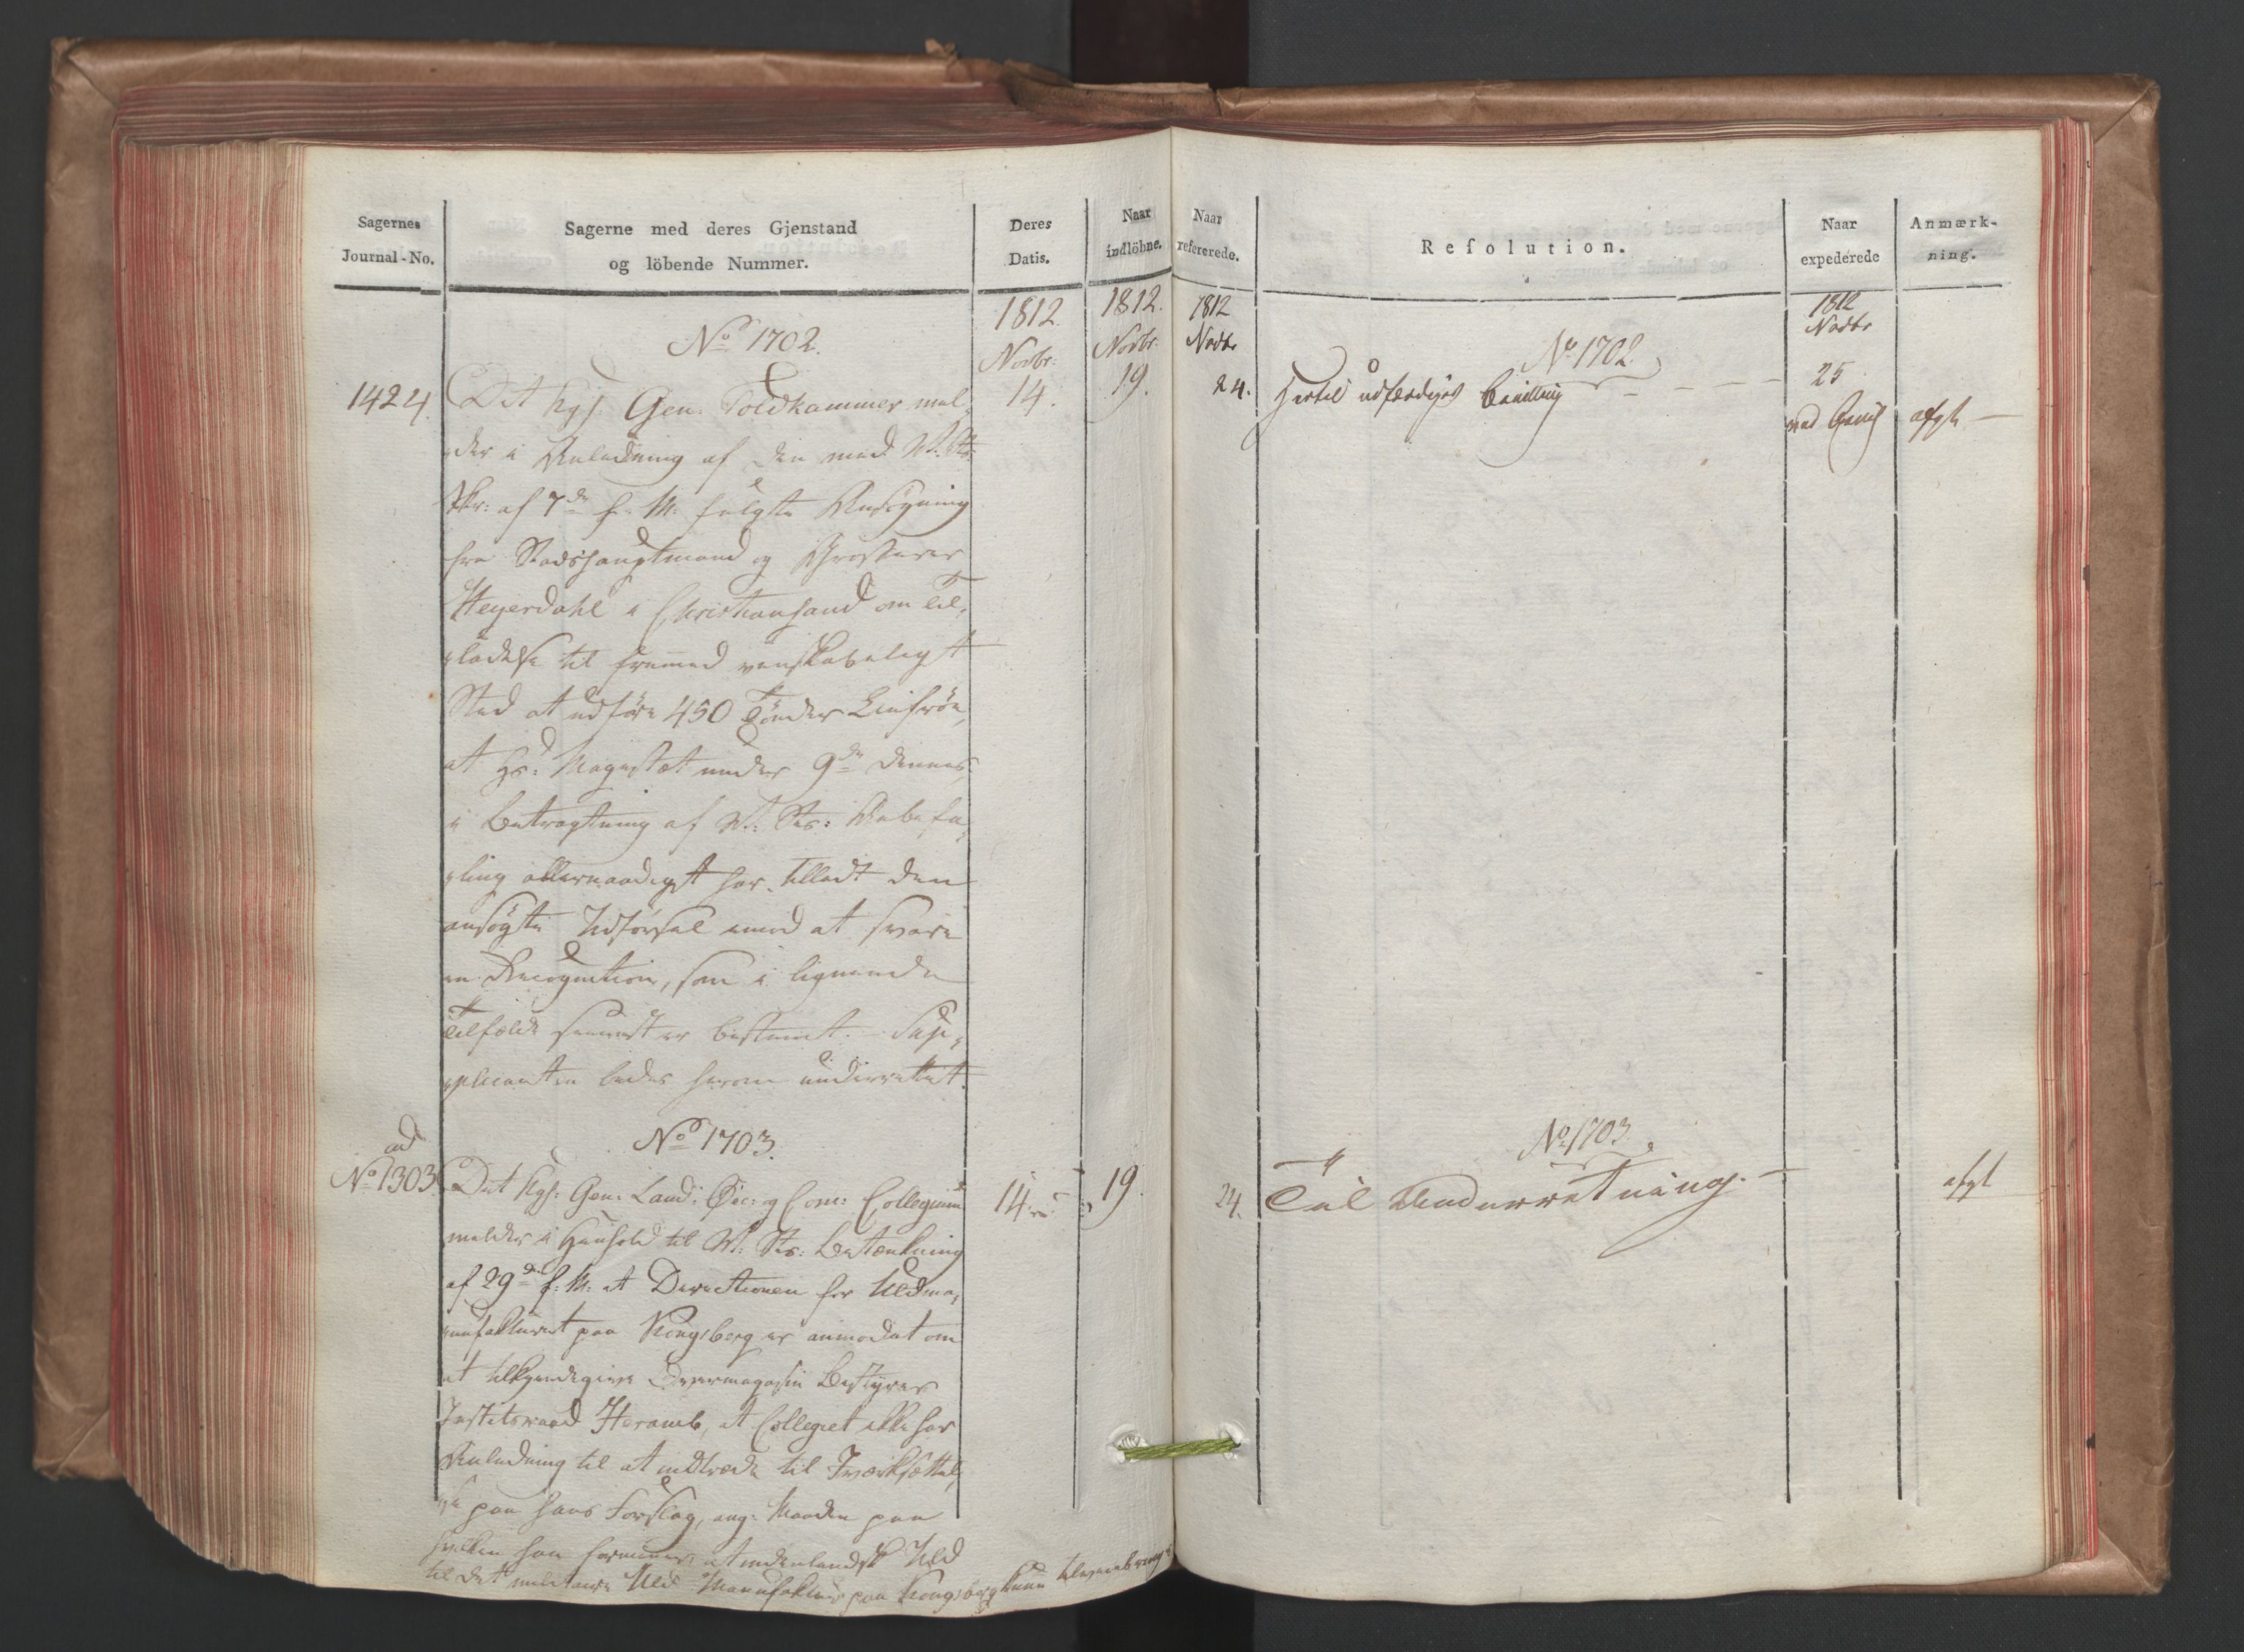 Sagernes
Journal-No.
Sagerne med deres Gjenstand
og löbende Nummer.
Deres
Datis.
Naar
indlöbne.
1812.
Novbr:
1812.
Novbr:
No 1702.
1424.
Det kgl: Gen: Toldkammer mel-
der i Anledning af den med
Skr: af 7de f: M: fulgte Ansögning
fra Stadshauptmand og Grosserer
Heyerdahl i Christiansand om Til-
ladelse til fremmed venskabeligt
Sted at udföre 450 Tönder Linfröe,
at Hs: Majestæt under 9de dennes,
i Betragtning af Anbefa-
ling allernaadigst har tilladt den
ansögte Udförsel imod at svare
en Recognition, som i lignende
Tilfælde er bestemt. Sup-
plicanten bedes herom underrettet.
14.
19.
ad
No 1303.
No 1703.
Det kgl: Gen: Land: Øec: og Com: Collegium
melder i Henhold til Betænkning
af 29de f: M: at Directionen for Uldma-
nufakturet paa Kongsberg er anmodet om
at tilkjendegive Overmagasin Bestyrer
Justitsraad Heramb, at Collegiet ikke har
Anledning til at indtræde til Iværksættel-
se paa hans Forslag, ang: Maaden paa
hvilken han formener at indenlandsk Uld
til det militaire Uld Manufaktur paa Kongsberg kunde tilveiebringes
14
19.
Naar
refererede.
Resolution.
Naar
expederede
Anmærk-
ning.
1812
Novbr
1812
Novbr
No 1702.
24.
Hertil udfærdiges Bevilling
25
afgt
No 1703
24.
Til Underretning.
afgt